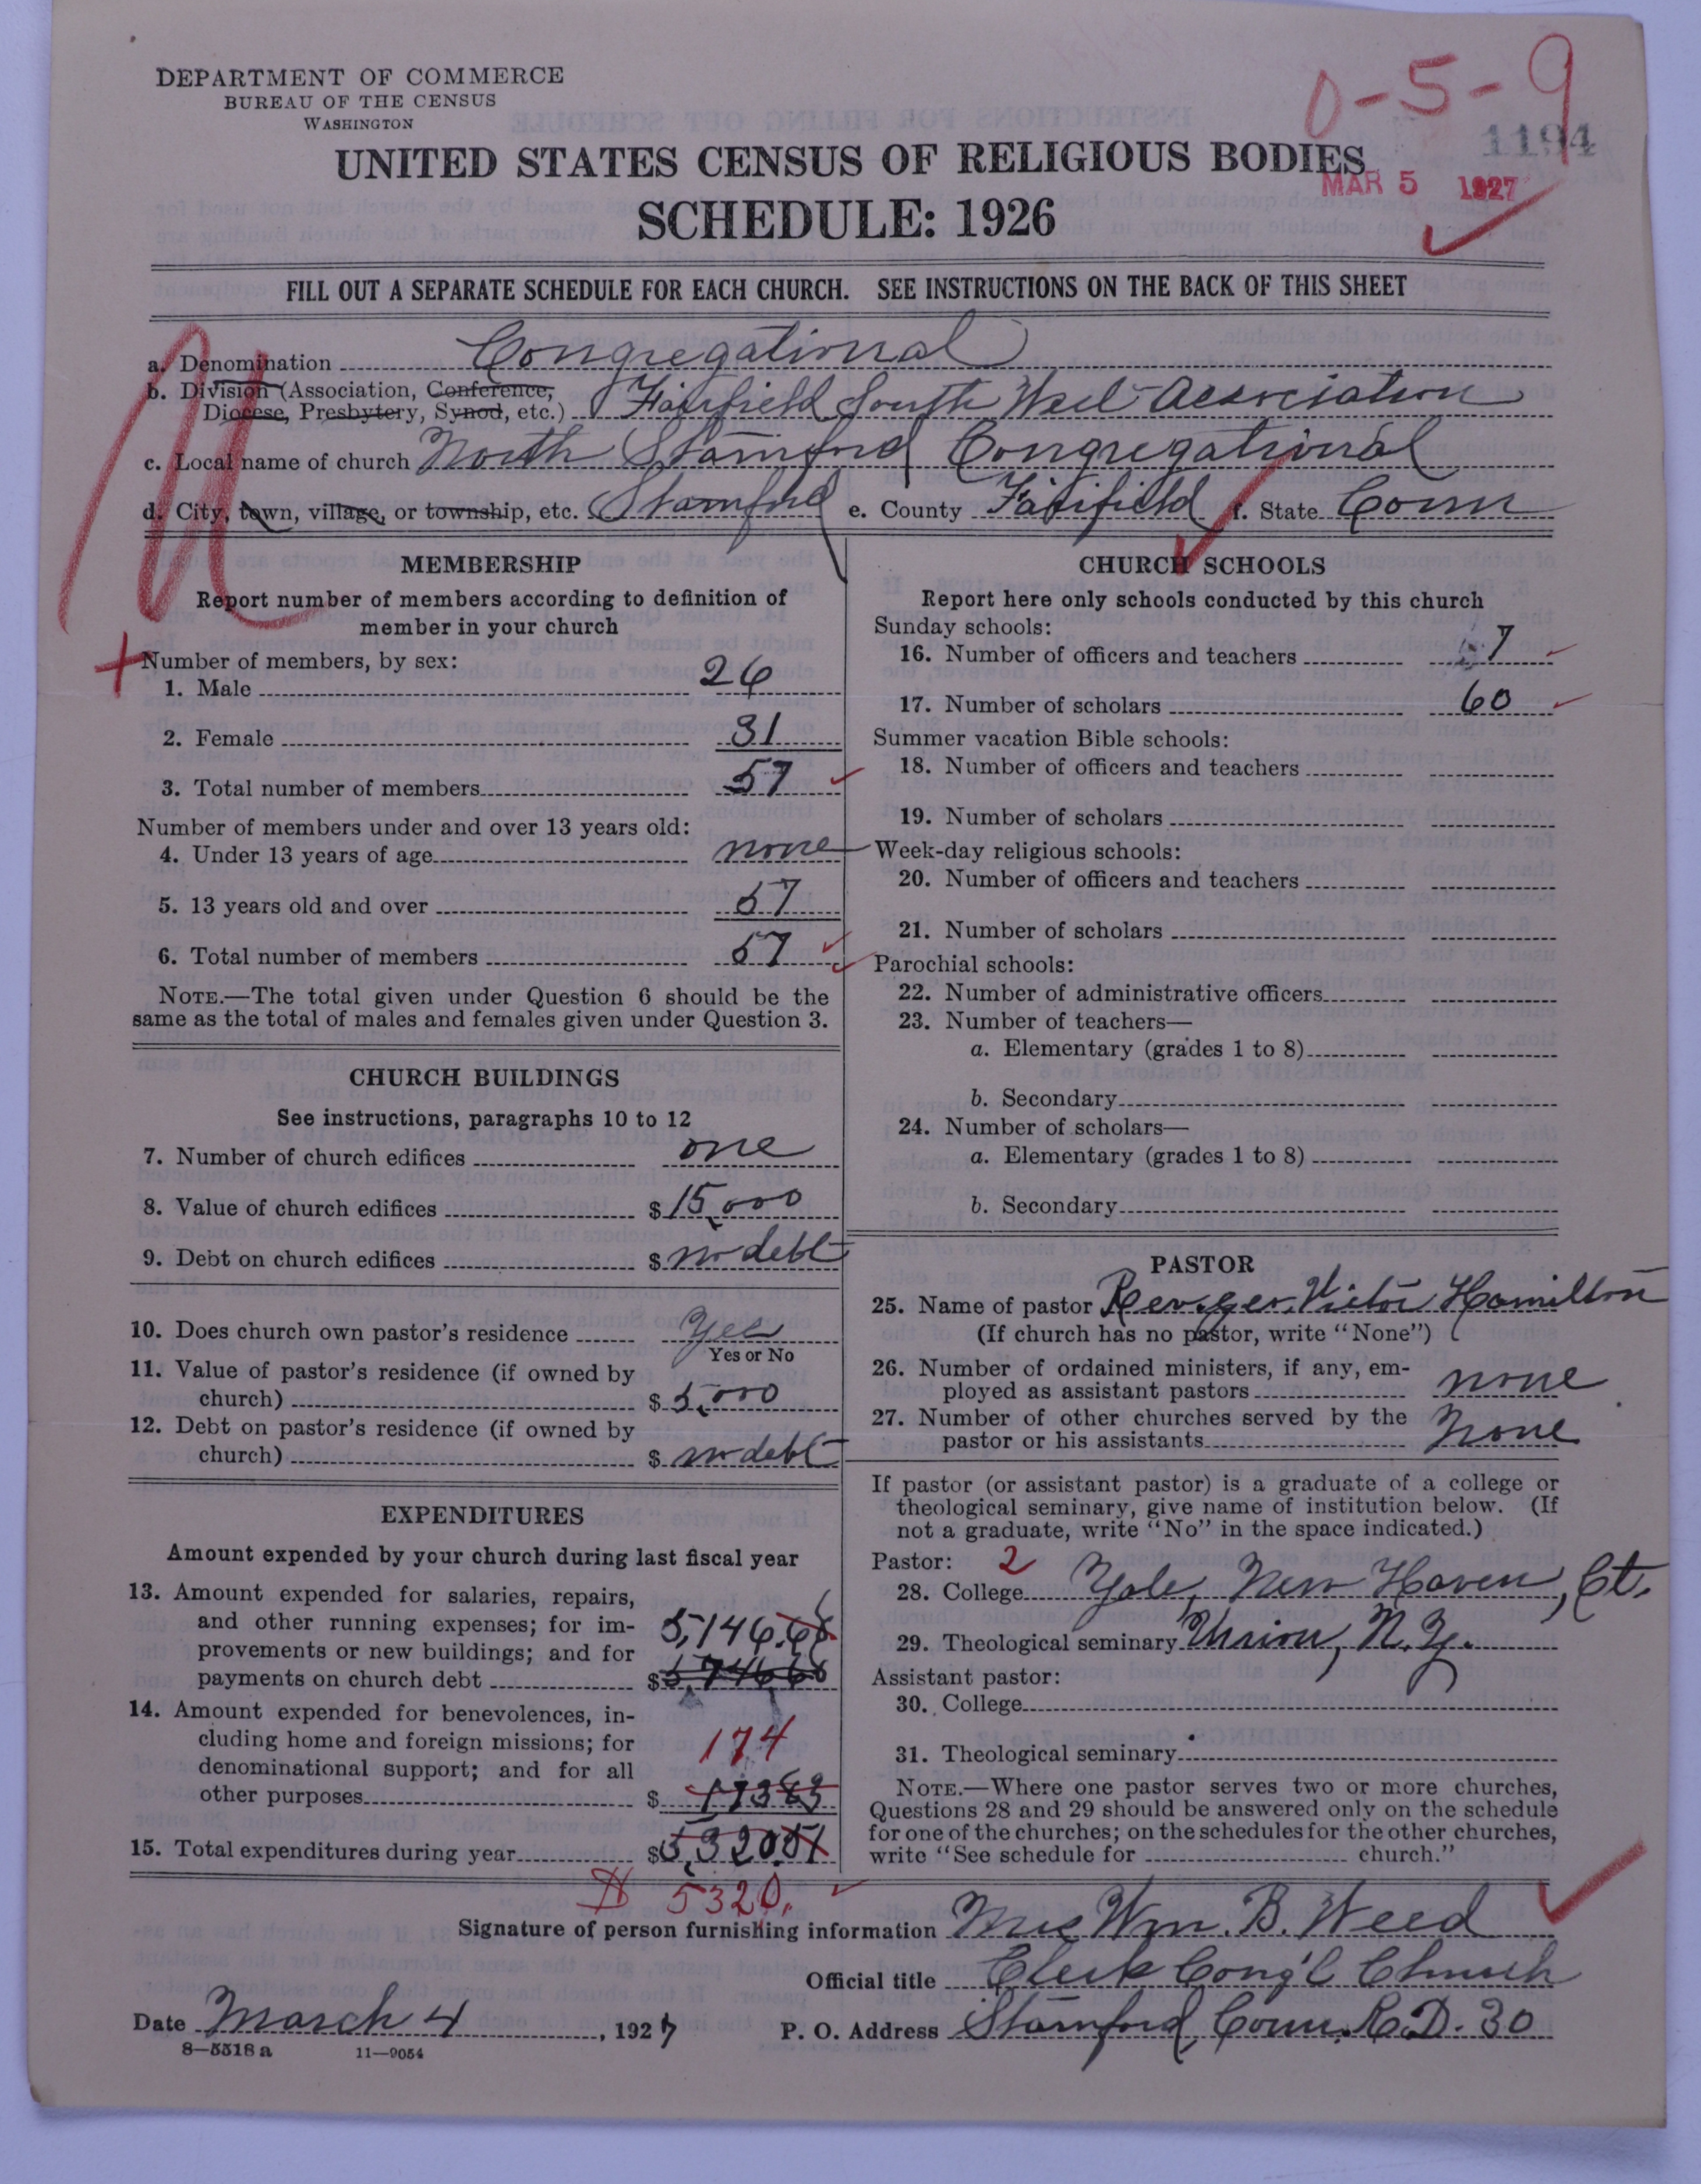 DEPARTMENT OF COMMERCE
BUREAU OF THE CENSUS
WASHINGTON
0-5-9
1194
UNITED STATES CENSUS OF RELIGIOUS BODIES
MAR 5 1927
SCHEDULE: 1926
FILL OUT A SEPARATE SCHEDULE FOR EACH CHURCH. SEE INSTRUCTIONS ON THE BACK OF THIS SHEET
a. Denomination Congregational
b. Division (Association, Conference,
Diocese, Presbytery, Synod, etc.) Fairfield South West Association
c. Local name of church North Stamford Congregational
d. City, town, village, or township, etc. Stamford e. County Fairfield f. State Conn
MEMBERSHIP
Report number of members according to definition of
member in your church
Number of members, by sex:
1. Male 26
2. Female 31
3. Total number of members 57
Number of members under and over 13 years old:
4. Under 13 years of age none
5. 13 years old and over 57
6. Total number of members 57
NOTE.—The total given under Question 6 should be the
same as the total of males and females given under Question 3.
CHURCH BUILDINGS
See instructions, paragraphs 10 to 12
7. Number of church edifices one
8. Value of church edifices $15,000
9. Debt on church edifices $ no debt
10. Does church own pastor's residence Yes
Yes or No
11. Value of pastor's residence (if owned by
church) $5,000
12. Debt on pastor's residence (if owned by
church) $ no debt
EXPENDITURES
Amount expended by your church during last fiscal year
13. Amount expended for salaries, repairs,
and other running expenses; for im-
provements or new buildings; and for
payments on church debt $ 5,146.68
14. Amount expended for benevolences, in-
cluding home and foreign missions; for
denominational support; and for all
other purposes $ 173 83
174
15. Total expenditures during year $5,320 51
$ 5320.
CHURCH SCHOOLS
Report here only schools conducted by this church
Sunday schools:
16. Number of officers and teachers 7
17. Number of scholars 60
Summer vacation Bible schools:
18. Number of officers and teachers
19. Number of scholars
Week-day religious schools:
20. Number of officers and teachers
21. Number of scholars
Parochial schools:
22. Number of administrative officers
23. Number of teachers—
a. Elementary (grades 1 to 8)
b. Secondary
24. Number of scholars—
a. Elementary (grades 1 to 8)
b. Secondary
PASTOR
25. Name of pastor Rev. Geo. Victor Hamilton
(If church has no pastor, write "None")
26. Number of ordained ministers, if any, em-
ployed as assistant pastors none
27. Number of other churches served by the
pastor or his assistants none
If pastor (or assistant pastor) is a graduate of a college or
theological seminary, give name of institution below. (If
not a graduate, write "No" in the space indicated.)
Pastor: 2
28. College Yale, New Haven, Ct.
29. Theological seminary Union, N.Y.
Assistant pastor:
30. College
31. Theological seminary
NOTE.—Where one pastor serves two or more churches,
Questions 28 and 29 should be answered only on the schedule
for one of the churches; on the schedules for the other churches,
write "See schedule for church."
Signature of person furnishing information Mrs Wm. B. Weed
Official title Clerk Cong'l Church
Date March 4, 1927 P. O. Address Stamford, Conn. R.D. 30
8—5518 a 11—9054